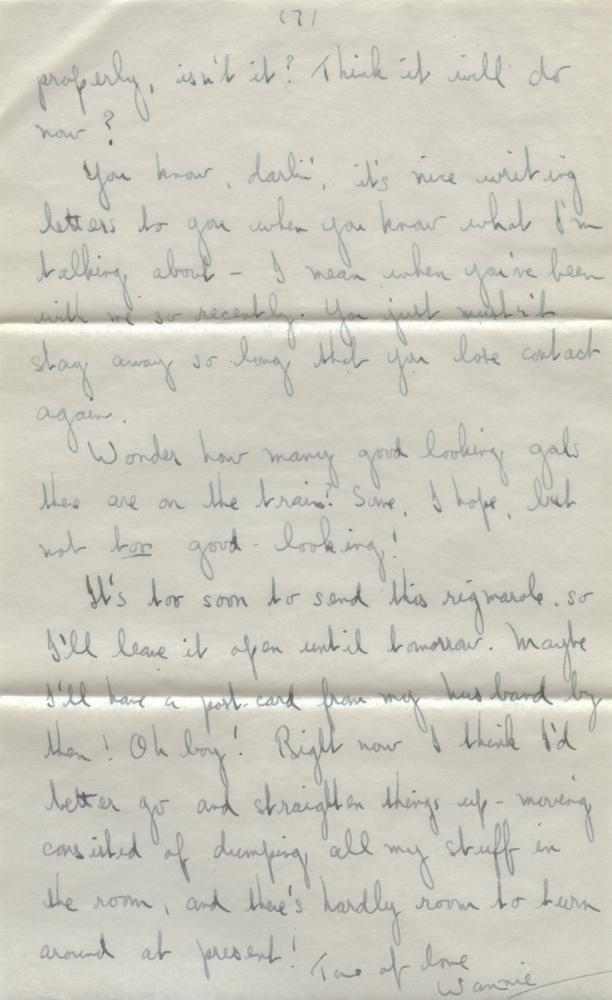 (7)
properly, isn't it? Think it will do
now?
You know, darlin', it's nice writing
letters to you when you know what I'm
talking about - I mean when you've been
with me so recently. You just mustn't
stay away so long that you lose contact
again.
Wonder how many good looking gals
there are on the train? Some, I hope, but
not too good-looking!
It's too soon to send this rigmarole, so
I'll leave it open until tomorrow. Maybe
I'll have a post-card from my husband by
then! Oh boy! Right now I think I'd
better go and straighten things up - moving
consisted of dumping all my stuff in
the room, and there's hardly room to turn
around at present!
of love
Wannie